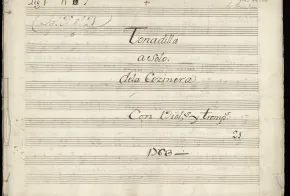 Tonadilla
a solo
dela Cozinera
Con Viols. y tromps.
21
1768